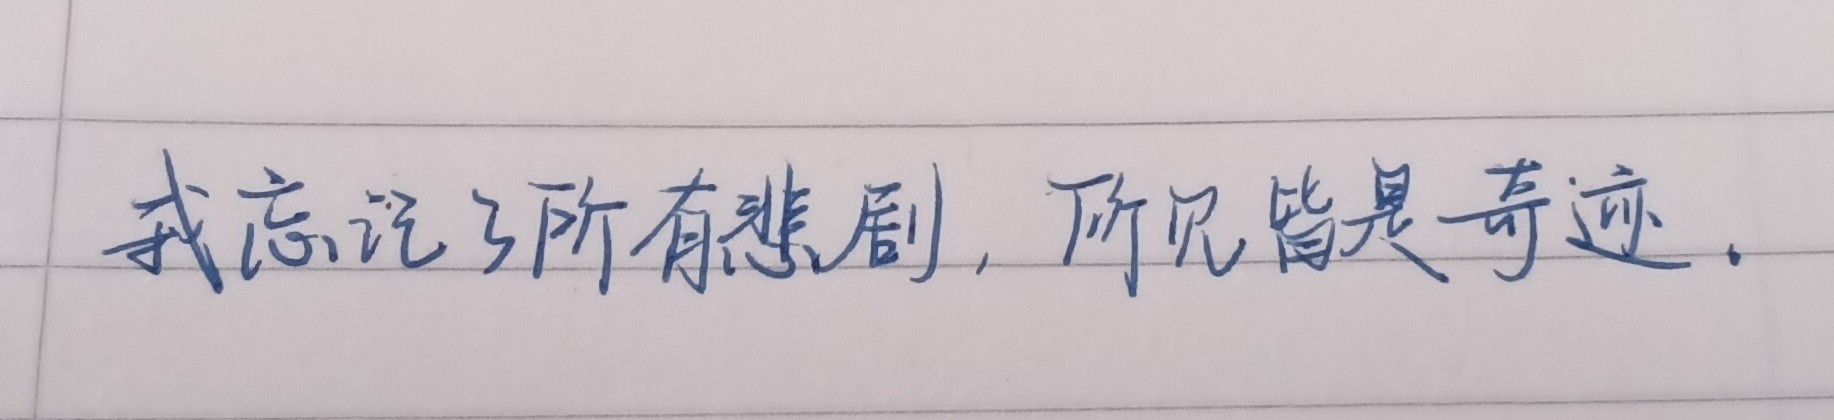 我忘记了所有悲剧，所见皆是奇迹.